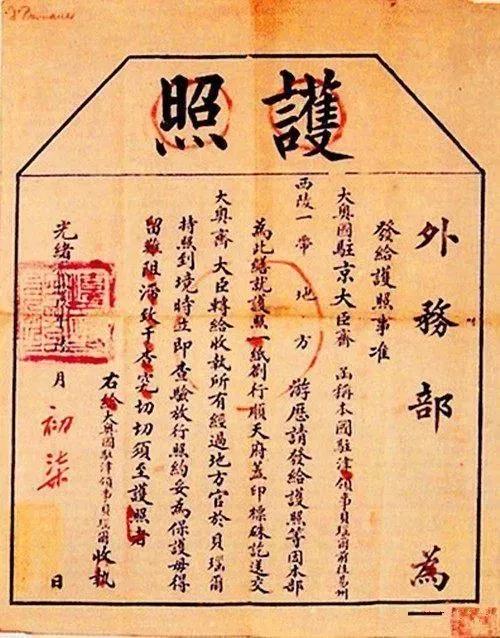 護照
外務部 為
發給護照事准
大奧國駐京大臣齊 函稱本國駐津領事貝瑤爾前往易州
西陵一帶地方 游歷請發給護照等因本部
為此繕就護照一紙劄行順天府蓋印標硃訖送交
大奧齊大臣轉給收執所有經過地方官於貝瑤爾
持照到境時立即查驗放行照約妥為保護毋得
留難阻滯致干查究切切須至護照者
右給大奧國駐津領事貝瑤爾收執
光緒 月初柒日